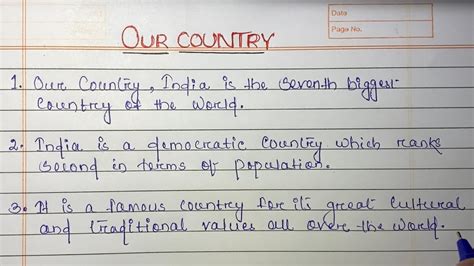 Date
Page No.
OUR COUNTRY
1. Our Country, India is the seventh biggest
country of the world.
2. India is a democratic country which ranks
second in terms of population.
3. It is a famous country for its great cultural
and traditional values all over the world.